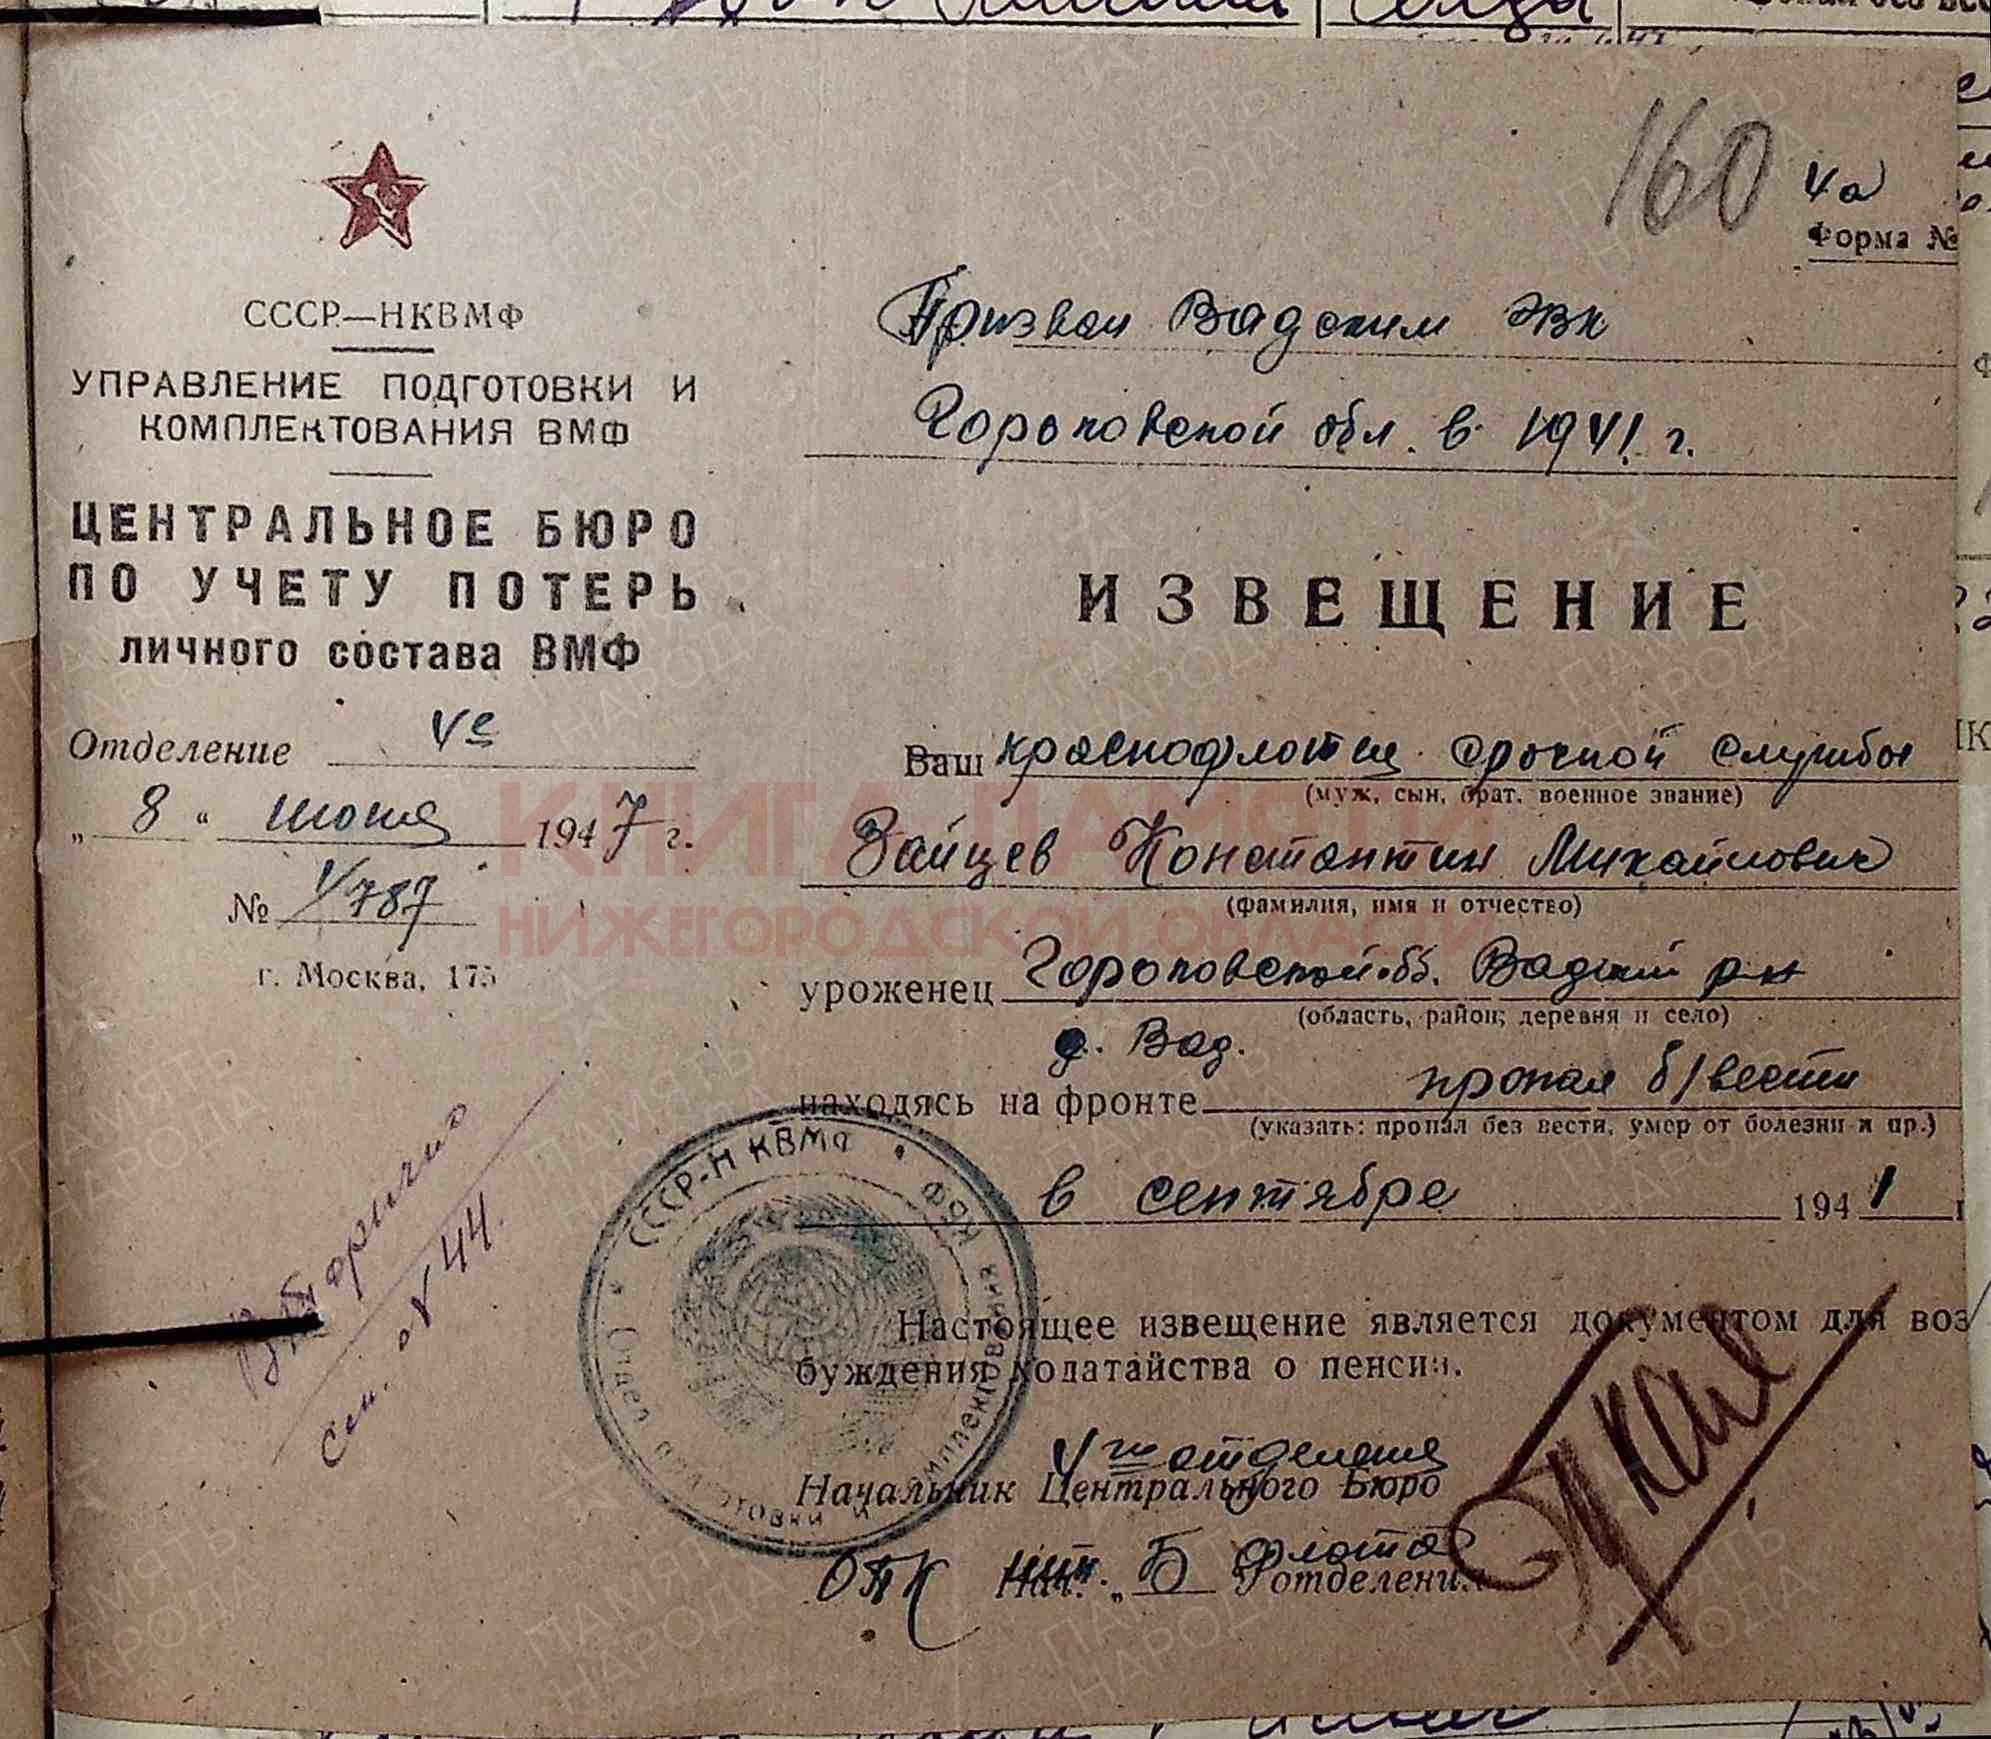 160
4а
Форма №
СССР—НКВМФ
УПРАВЛЕНИЕ ПОДГОТОВКИ И
КОМПЛЕКТОВАНИЯ ВМФ
ЦЕНТРАЛЬНОЕ БЮРО
ПО УЧЕТУ ПОТЕРЬ
личного состава ВМФ
Отделение Vе
„ 8 “ июня 1947 г.
№ V/787
г. Москва, 175
Вторично
См. № 44.
Призван Вадским РВК
Горьковской обл. в 1941 г.
ИЗВЕЩЕНИЕ
Ваш краснофлотец срочной службы
(муж, сын, брат, военное звание)
Зайцев Константин Михайлович
(фамилия, имя и отчество)
уроженец Горьковской об. Вадский р-н
(область, район; деревня и село)
д. Вад.
находясь на фронте пропал б/вести
(указать: пропал без вести, умер от болезни и пр.)
в сентябре 1941 г
Настоящее извещение является документом для воз
буждения ходатайства о пенсии.
V го отделения
Начальник Центрального Бюро
ОПК Нач. „Б Флота
отделения
СССР-НКВМФ
Отдел подготовки и комплектования
КНИГА ПАМЯТИ
НИЖЕГОРОДСКОЙ ОБЛАСТИ
ПАМЯТЬ НАРОДА